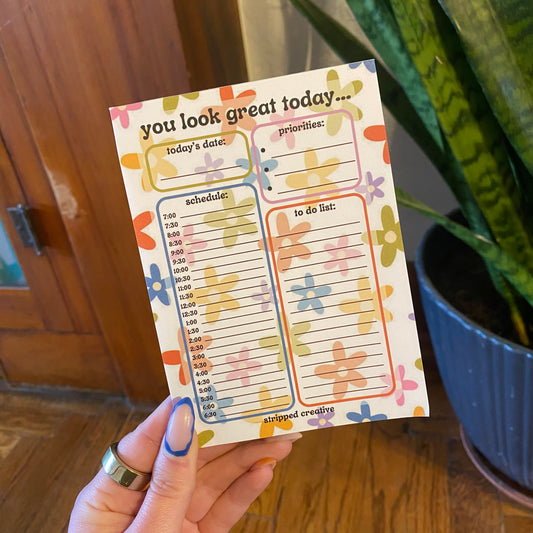 you look great today...
today's date:
priorities:
schedule:
7:00
7:30
8:00
8:30
9:00
9:30
10:00
10:30
11:00
11:30
12:00
12:30
1:00
1:30
2:00
2:30
3:00
3:30
4:00
4:30
5:00
5:30
6:00
6:30
to do list:
stripped creative